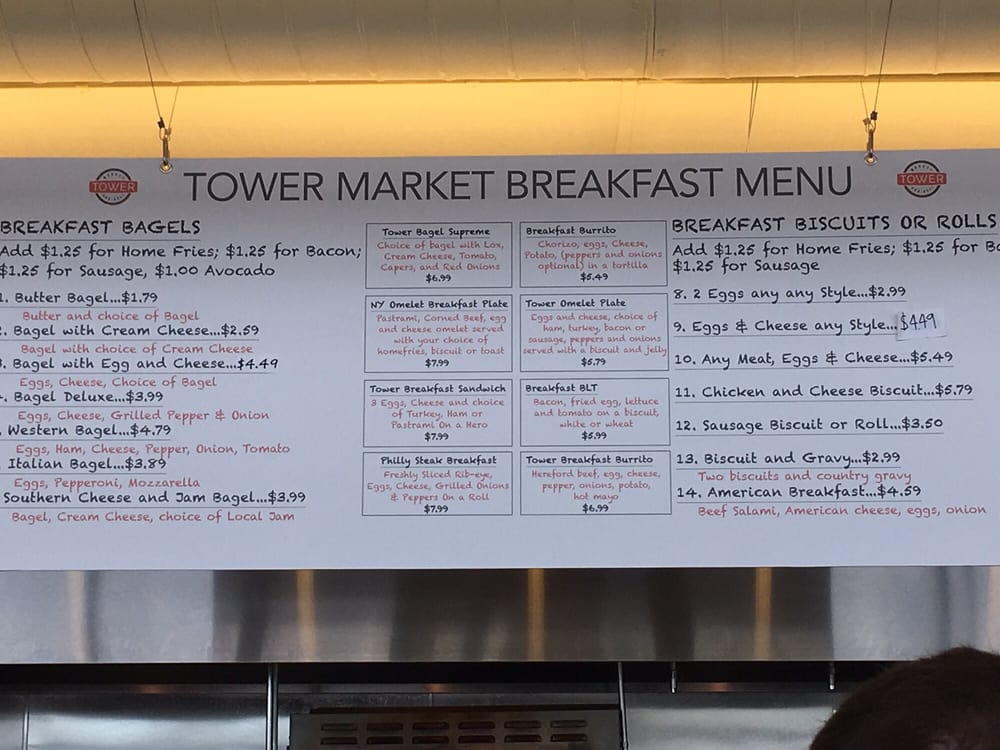 TOWER
TOWER MARKET BREAKFAST MENU
TOWER
BREAKFAST BAGELS
Add $1.25 for Home Fries; $1.25 for Bacon;
$1.25 for Sausage, $1.00 Avocado
1. Butter Bagel...$1.79
Butter and choice of Bagel
2. Bagel with Cream Cheese...$2.59
Bagel with choice of Cream Cheese
3. Bagel with Egg and Cheese...$4.49
Eggs, Cheese, Choice of Bagel
. Bagel Deluxe...$3.99
Eggs, Cheese, Grilled Pepper & Onion
. Western Bagel...$4.79
Eggs, Ham, Cheese, Pepper, Onion, Tomato
Italian Bagel...$3.89
Eggs, Pepperoni, Mozzarella
Southern Cheese and Jam Bagel...$3.99
Bagel, Cream Cheese, choice of Local Jam
Tower Bagel Supreme
Choice of bagel with Lox,
Cream Cheese, Tomato,
Capers, and Red Onions
$6.99
NY Omelet Breakfast Plate
Pastrami, Corned Beef, egg
and cheese omelet served
with your choice of
homefries, biscuit or toast
$7.99
Tower Breakfast Sandwich
3 Eggs, Cheese and choice
of Turkey, Ham or
Pastrami On a Hero
$7.99
Philly Steak Breakfast
Freshly Sliced Rib-eye,
Eggs, Cheese, Grilled Onions
& Peppers On a Roll
$7.99
Breakfast Burrito
Chorizo, eggs, Cheese,
Potato, (peppers and onions
optional) in a tortilla
$5.49
Tower Omelet Plate
Eggs and cheese, choice of
ham, turkey, bacon or
sausage, peppers and onions
served with a biscuit and jelly
$5.79
Breakfast BLT
Bacon, fried egg, lettuce
and tomato on a biscuit,
white or wheat
$5.99
Tower Breakfast Burrito
Hereford beef, egg, cheese,
pepper, onions, potato,
hot mayo
$6.99
BREAKFAST BISCUITS OR ROLLS
Add $1.25 for Home Fries; $1.25 for Ba
$1.25 for Sausage
8. 2 Eggs any any Style...$2.99
9. Eggs & Cheese any Style...$4.49
10. Any Meat, Eggs & Cheese...$5.49
11. Chicken and Cheese Biscuit...$5.79
12. Sausage Biscuit or Roll...$3.50
13. Biscuit and Gravy...$2.99
Two biscuits and country gravy
14. American Breakfast...$4.59
Beef Salami, American cheese, eggs, onion